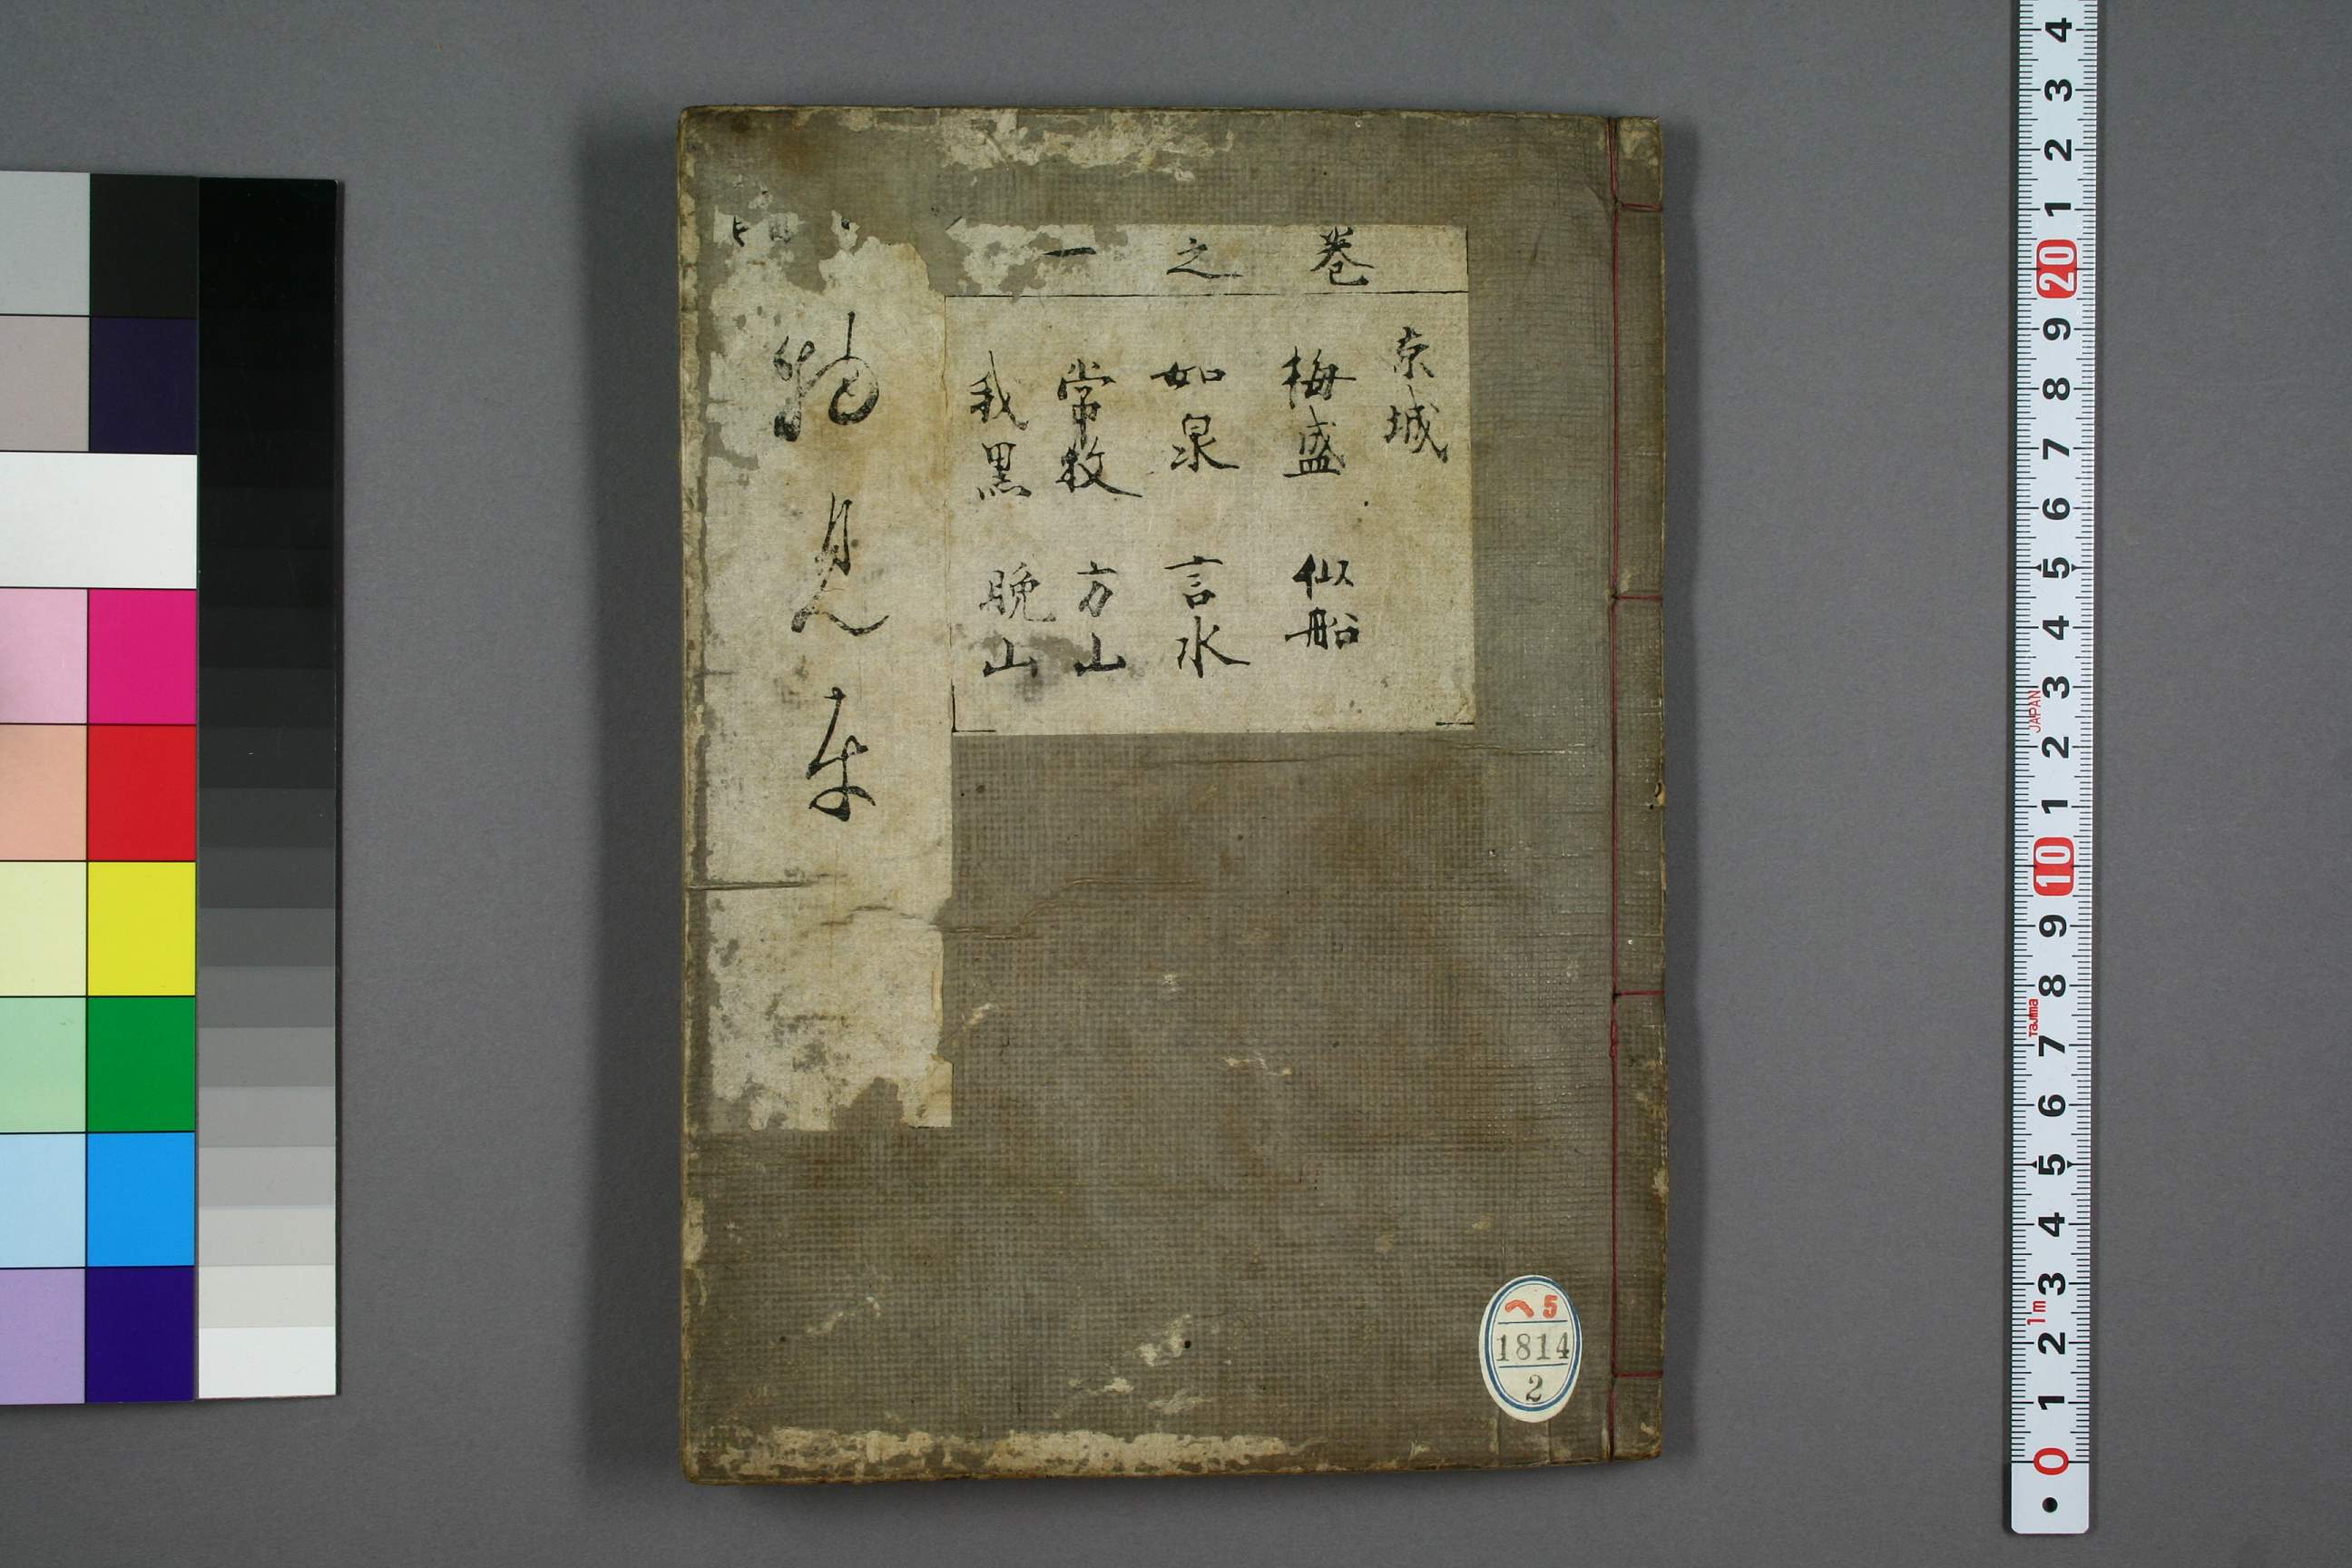 巻之一
京城
梅盛 似船
如泉 言水
常牧 方山
我黒 晩山
物見車
へ5
1814
2
4
3
2
1
20
9
8
7
6
5
4
3
JAPAN
2
1
10
9
8
Tajima
7
6
5
4
3
1m
2
1
0